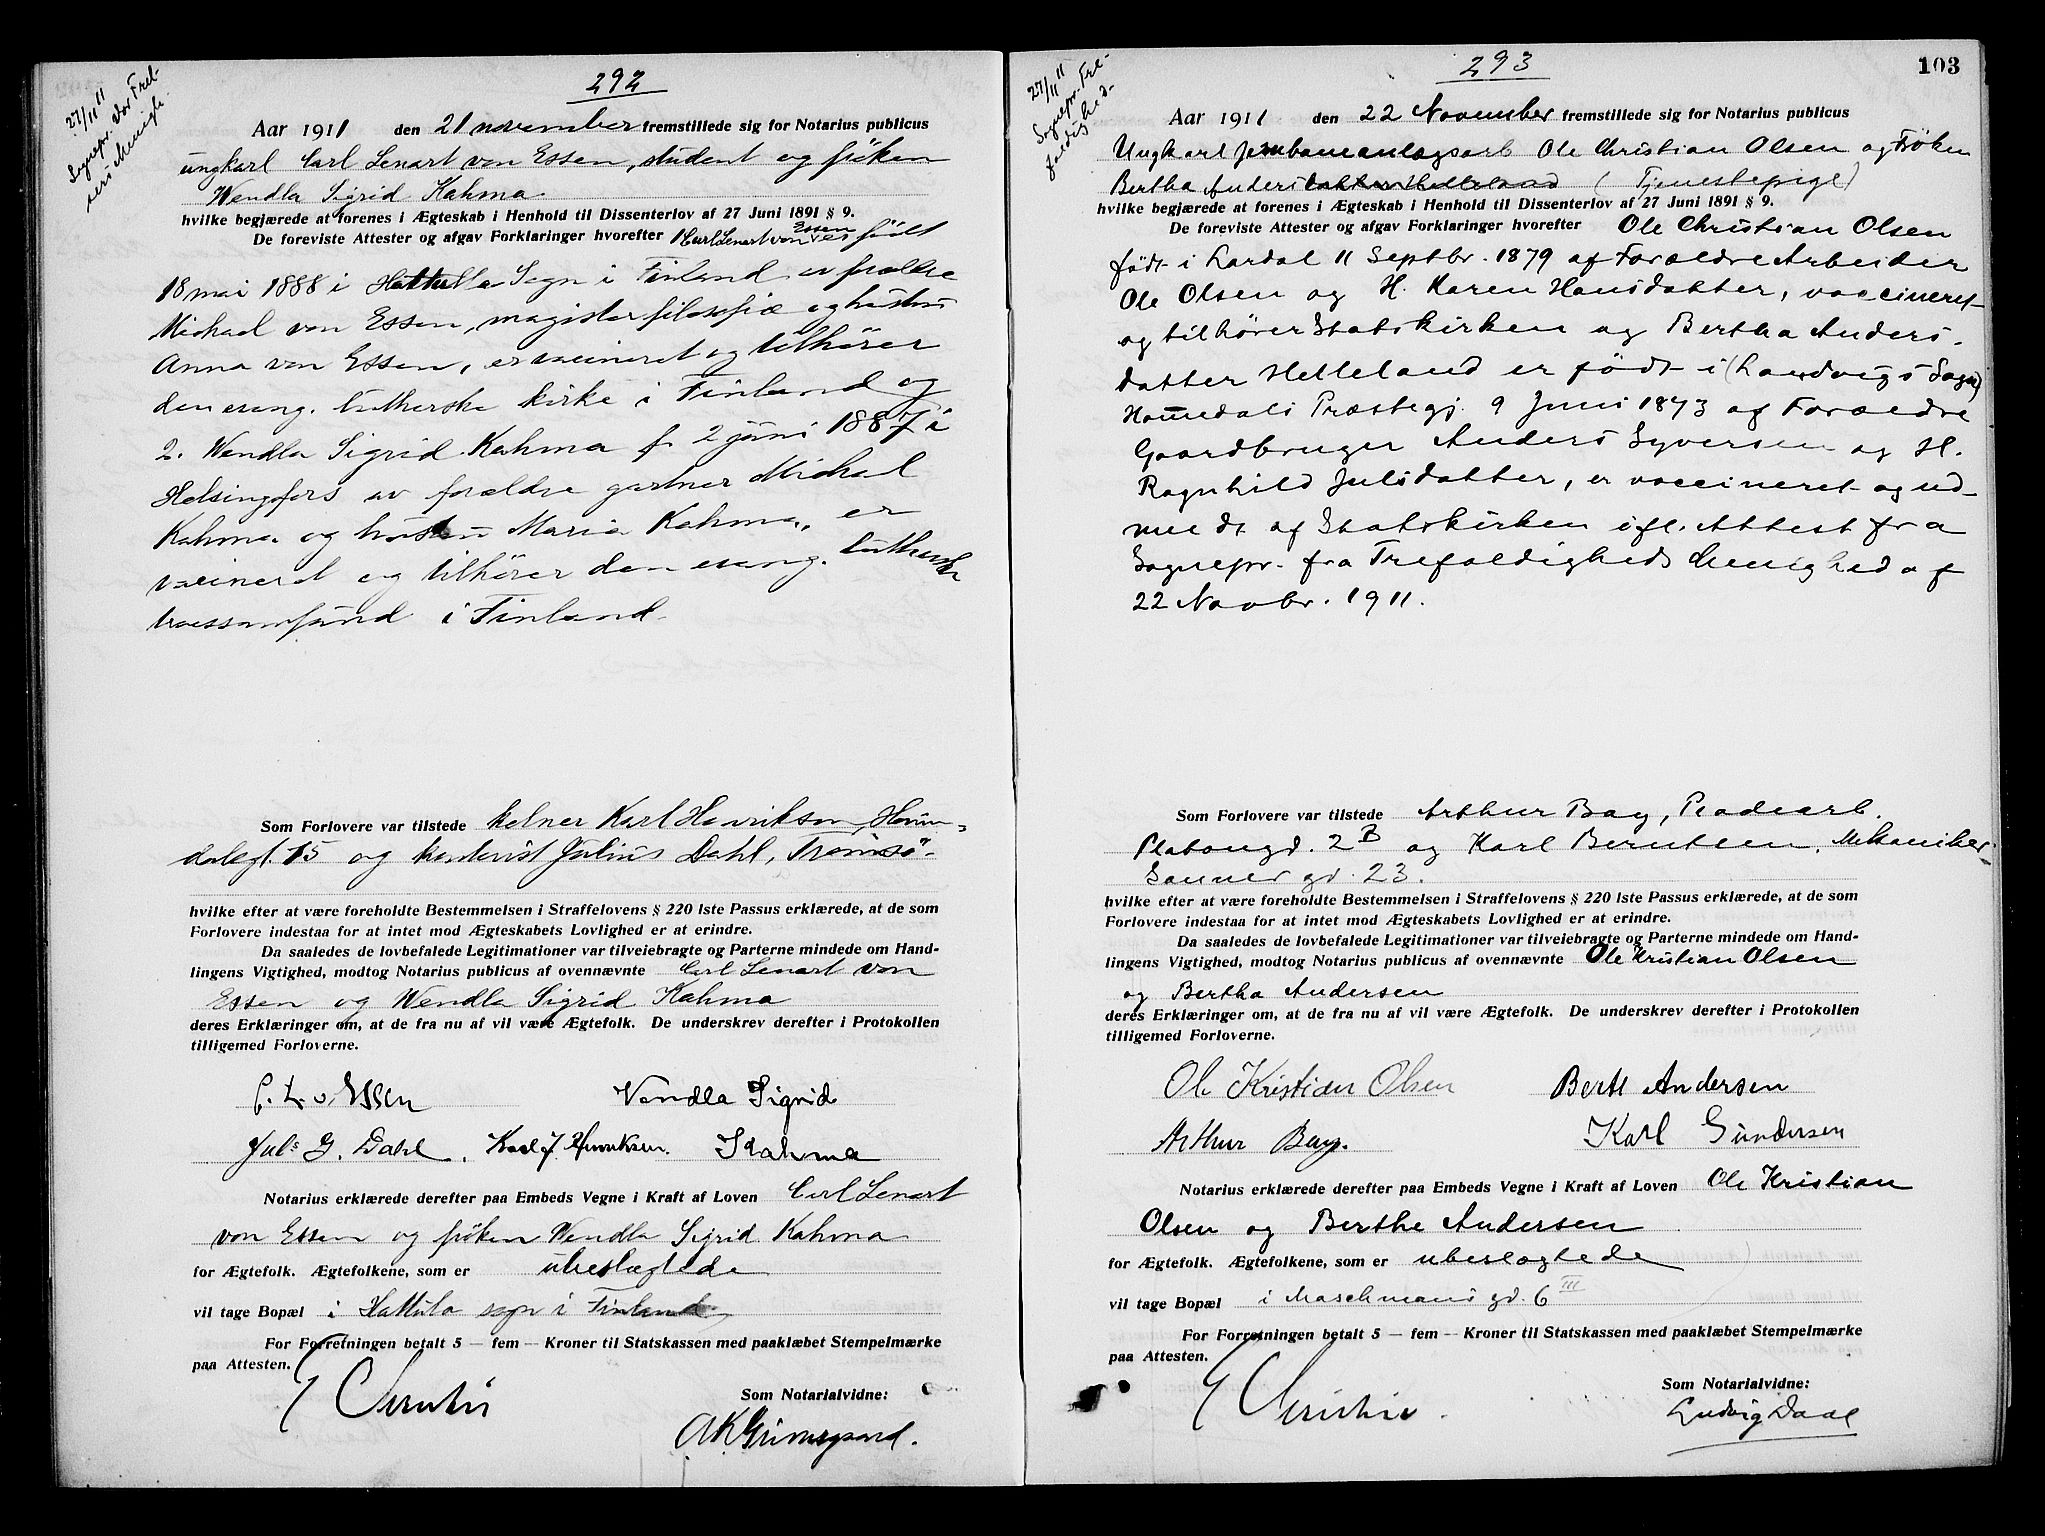 27/11 11
Sognepr. Vor Frel-
sers Menigh.
292
Aar 1911 den 21 november fremstillede sig for Notarius publicus
ungkarl Carl Lenart von Essen, student og frøken
Wendla Sigrid Kahma
hvilke begjærede at forenes i Ægteskab i Henhold til Dissenterlov af 27 Juni 1891 § 9.
De foreviste Attester og afgav Forklaringer hvorefter 1 Carl Lenart von Essen født
18 mai 1888 i Hattula Sogn i Finland av forældre
Michael von Essen, magister filosofiæ og hustru
Anna von Essen, er vacineret og tilhører
den evang. lutherske kirke i Finland og
2. Wendla Sigrid Kahma f. 2 juni 1887 i
Helsingfors av forældre gartner Michael
Kahma og hustru Maria Kahma, er
vacineret og tilhører den evang. lutherske
trossamfund i Finland.
Som Forlovere var tilstede kelner Karl Henriksen, Heim-
dalsgt. 15 og kontorist Julius Dahl, Tromsö-
hvilke efter at være foreholdte Bestemmelsen i Straffelovens § 220 1ste Passus erklærede, at de som
Forlovere indestaa for at intet mod Ægteskabets Lovlighed er at erindre.
Da saaledes de lovbefalede Legitimationer var tilveiebragte og Parterne mindede om Hand-
lingens Vigtighed, modtog Notarius publicus af ovennævnte Carl Lenart von
Essen og Wendla Sigrid Kahma
deres Erklæringer om, at de fra nu af vil være Ægtefolk. De underskrev derefter i Protokollen
tilligemed Forloverne.
C. L. v. Essen Vendla Sigrid
Juls G. Dahl. Karl J. Henriksen. Kahma
Notarius erklærede derefter paa Embeds Vegne i Kraft af Loven Carl Lenart
von Essen og frøken Wendla Sigrid Kahma
for Ægtefolk. Ægtefolkene, som er ubeslægtede
vil tage Bopæl i Hattula sogn i Finland
For Forretningen betalt 5 — fem — Kroner til Statskassen med paaklæbet Stempelmærke
paa Attesten.
E Christie
Som Notarialvidne:
AK Grimsgaard.
103
27/11 11
Sognepr. Tre-
foldighed-
293
Aar 1911 den 22 November fremstillede sig for Notarius publicus
Ungkarl jernbaneanlægsarb Ole Christian Olsen og Frøken
Bertha Andersdatter Helleland (Tjenestepige)
hvilke begjærede at forenes i Ægteskab i Henhold til Dissenterlov af 27 Juni 1891 § 9.
De foreviste Attester og afgav Forklaringer hvorefter Ole Christian Olsen
født i Lardal 11 Septbr. 1879 af Forældre Arbeider
Ole Olsen og H. Karen Hansdatter, vaccineret
og tilhører Statskirken og Bertha Anders-
datter Helleland er født i (Landvigs Sogn)
Hommedals Præstegj. 9 Juni 1873 af Forældre
Gaardbruger Anders Syversen og H.
Ragnhild Julsdatter, er vaccineret og ud-
meldt af Statskirken ifl. Attest fra
Sognepr. fra Trefoldigheds Menighed af
22 Novbr. 1911.
Som Forlovere var tilstede Arthur Bay,
Platousgd. 2 B og Karl Berntsen, Mekaniker
Sannergd. 23.
hvilke efter at være foreholdte Bestemmelsen i Straffelovens § 220 1ste Passus erklærede, at de som
Forlovere indestaa for at intet mod Ægteskabets Lovlighed er at erindre.
Da saaledes de lovbefalede Legitimationer var tilveiebragte og Parterne mindede om Hand-
lingens Vigtighed, modtog Notarius publicus af ovennævnte Ole Kristian Olsen
og Bertha Andersen
deres Erklæringer om, at de fra nu af vil være Ægtefolk. De underskrev derefter i Protokollen
tilligemed Forloverne.
Ole Kristian Olsen Berte Andersen
Arthur Bay. Karl Gundersen
Notarius erklærede derefter paa Embeds Vegne i Kraft af Loven Ole Kristian
Olsen og Berthe Andersen
for Ægtefolk. Ægtefolkene, som er ubeslægtede
vil tage Bopæl i Maschmans gd. 6 III
For Forretningen betalt 5 — fem — Kroner til Statskassen med paaklæbet Stempelmærke
paa Attesten.
E Christie.
Som Notarialvidne:
Ludvig Daae